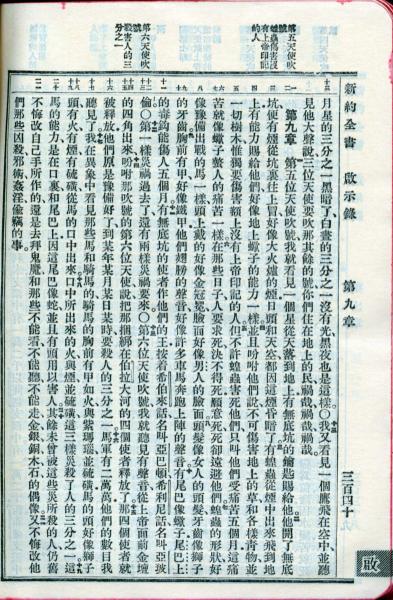 新約全書 啟示錄 第九章 三百四十
啟
第五天使吹
號
蝗蟲傷害沒
有上帝印記
的人
第六天使吹
號
殺害人的三
分之一
月星的三分之一黑暗了白晝的三分之一沒有光黑夜也是這樣○我又看見一個鷹飛在空中並聽
見他大聲說三位天使要吹那其餘的號你們住在地上的民禍哉禍哉禍哉
第九章 第五位天使吹號我就看見一個星從天落到地上有無底坑的鑰匙賜給他他開了無底
坑便有煙從坑裏往上冒好像大火爐的煙日頭和天空都因這煙昏暗了有蝗蟲從煙中出來飛到地
上有能力賜給他們好像地上蠍子的能力一樣並且吩咐他們說不可傷害地上的草和各樣青物並
一切樹木惟獨要傷害額上沒有上帝印記的人但不許蝗蟲害死他們只叫他們受痛苦五個月這痛
苦就像蠍子螫人的痛苦一樣在那些日子人要求死決不得死願意死死卻遠避他們蝗蟲的形狀好
像豫備出戰的馬一樣頭上戴的好像金冠冕臉面好像男人的臉面頭髮像女人的頭髮牙齒像獅子
的牙齒胸前有甲好像鐵甲他們翅膀的聲音好像許多車馬奔跑上陣的聲音有尾巴像蠍子尾巴上
的毒鉤能傷人五個月有無底坑的使者作他們的王按着希伯來話名叫亞巴頓希利尼話名叫亞玻
倫○第一樣災禍過去了還有兩樣災禍要來○第六位天使吹號我就聽見有聲音從上帝面前金壇
的四角出來吩咐那吹號的第六位天使說把那捆綁在伯拉大河的四個使者釋放了那四個使者就
被釋放他們原是豫備好了到某年某月某日某時要殺人的三分之一馬軍有二萬萬他們的數目我
聽見了我在異象中看見那些馬和騎馬的騎馬的胸前有甲如火與紫瑪瑙並硫磺馬的頭好像獅子
頭有火有煙有硫磺從馬的口中出來口中所出來的火與煙並硫磺這三樣災殺了人的三分之一這
馬的能力是在口裏和尾巴上因這尾巴像蛇並且有頭用以害人其餘未曾被這些災所殺的人仍舊
不悔改自己手所作的還是去拜鬼魔和那些不能看不能聽不能走金銀銅木石的偶像又不悔改他
們那些凶殺邪術姦淫偷竊的事